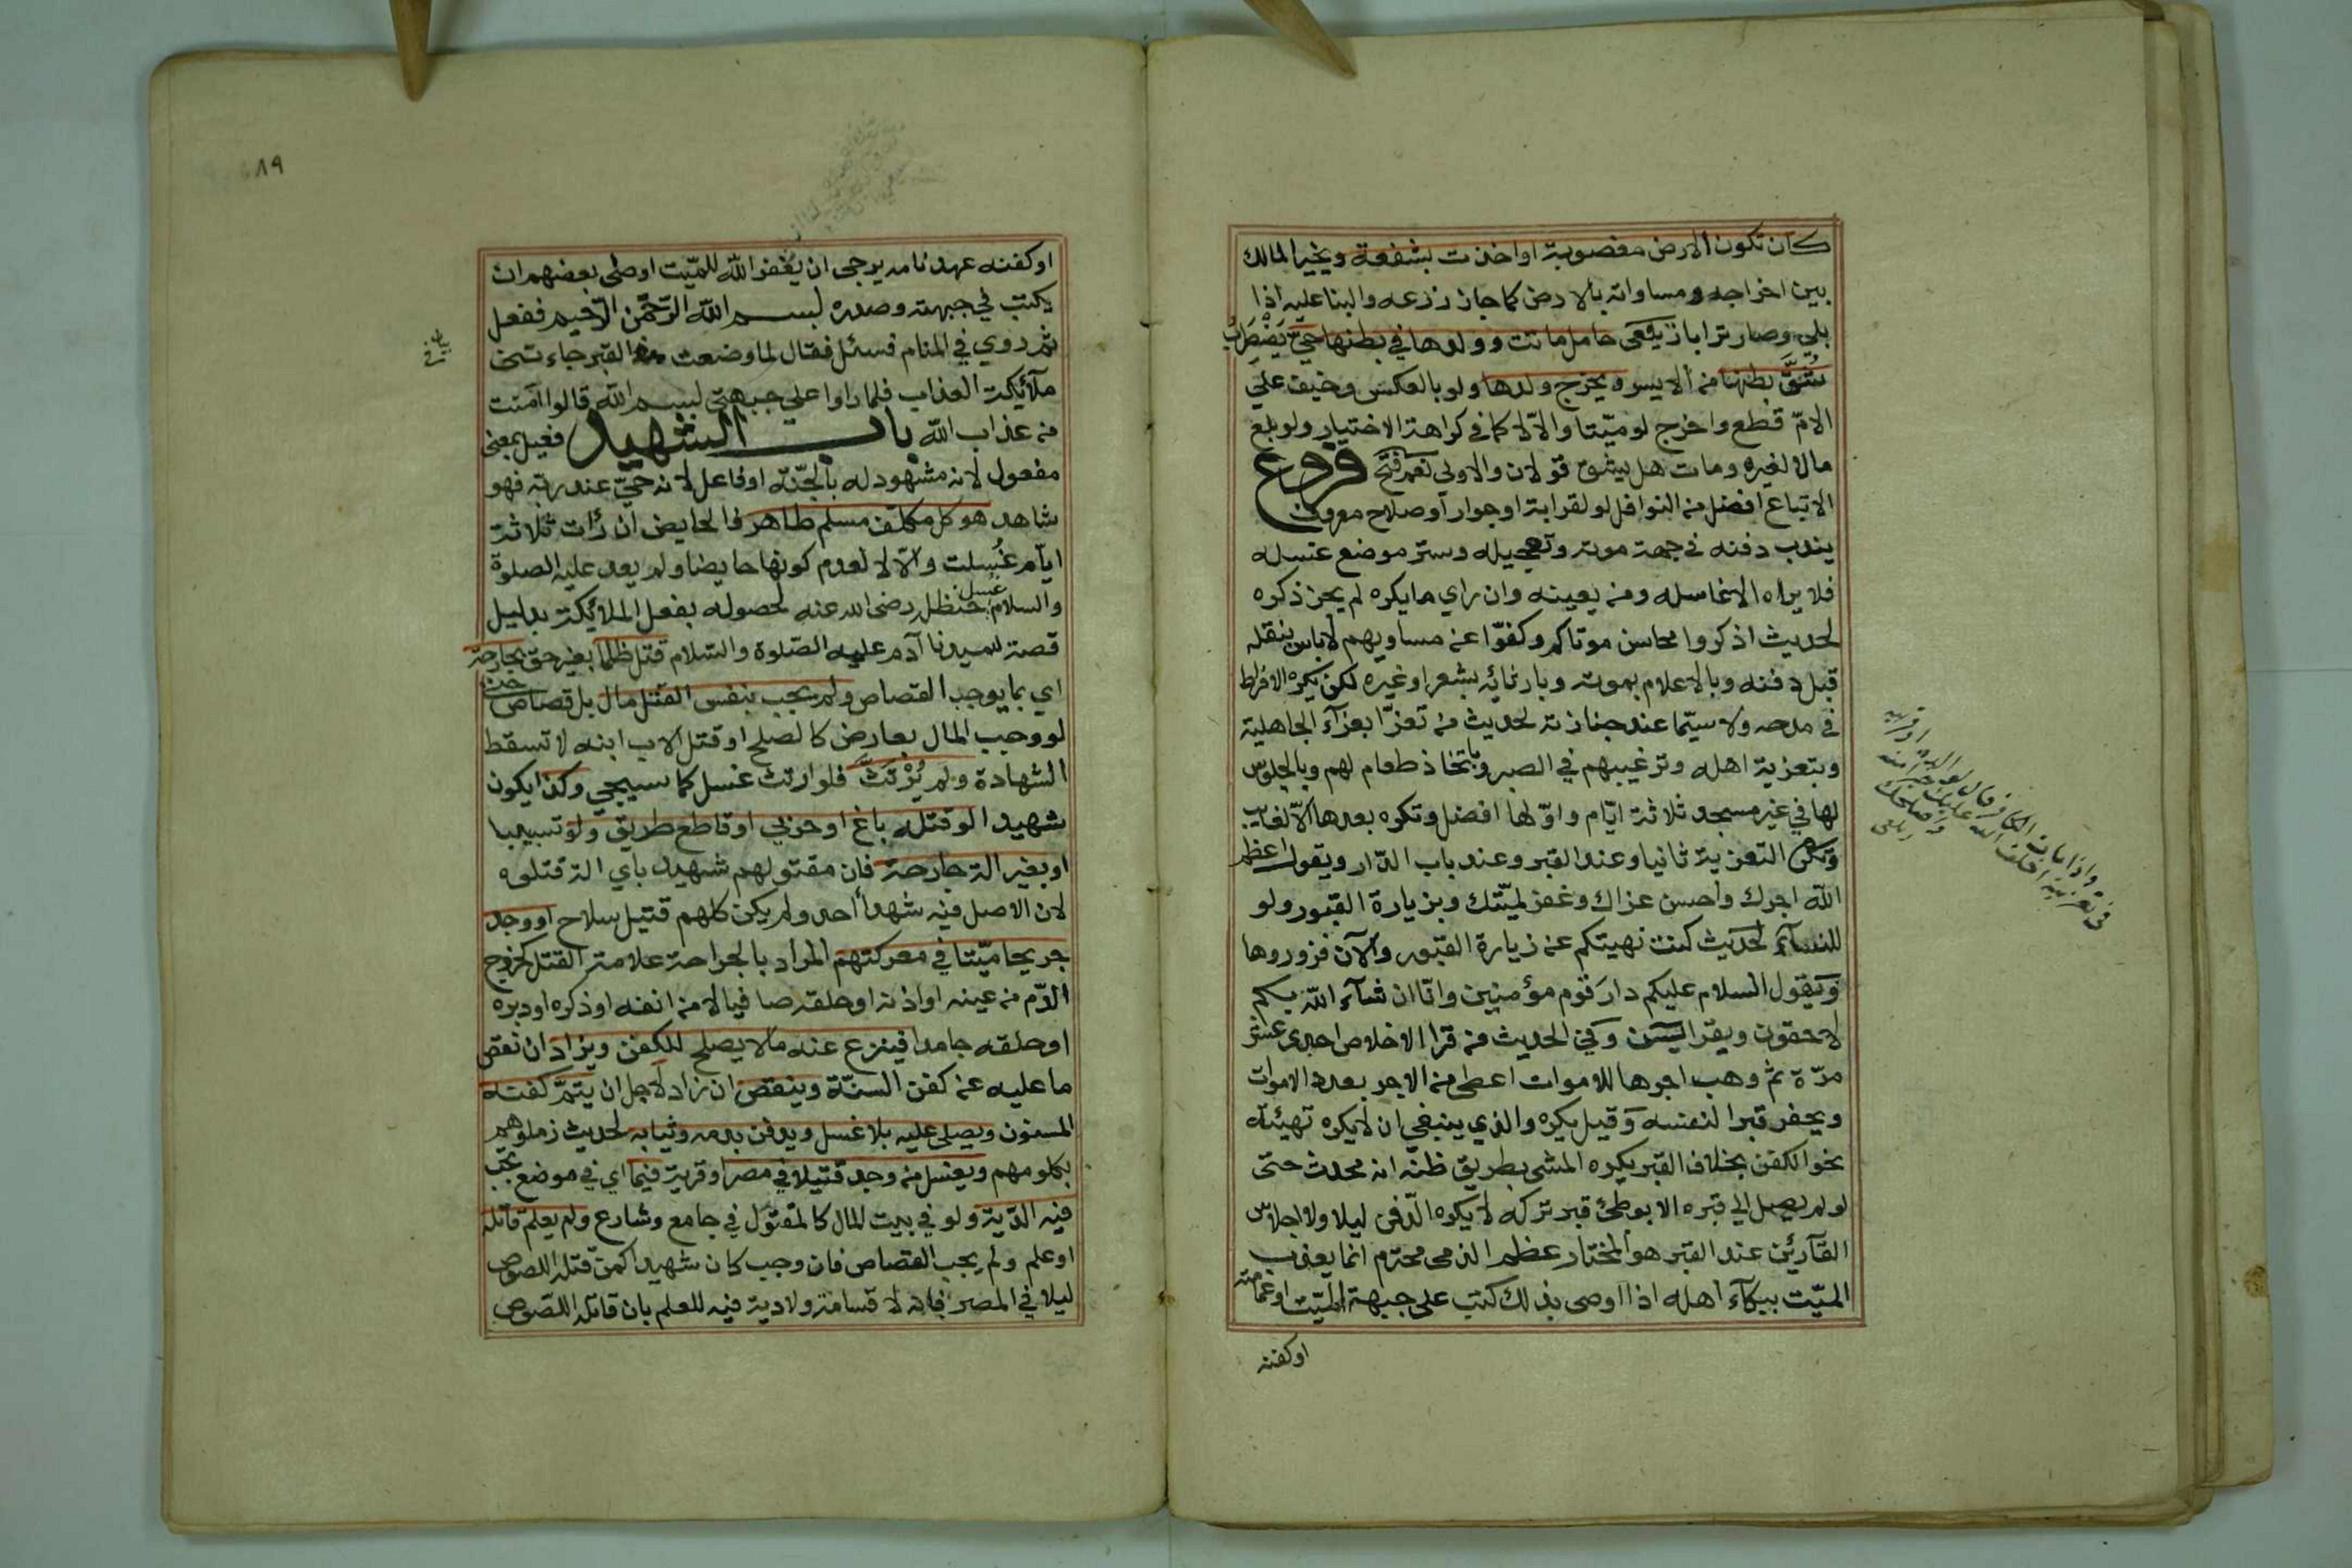 كان تكون الارض مغصوبة او اخذت بشفعة ويخير المالك
بين اخراجه ومساواته بالارض كما جاز زرعه والبنا عليه اذا
بلي وصار ترابا زيلعى حامل ماتت وولدها في بطنها حيّ يَضْطَرِبُ
شُقَّ بطنها من الايسر ويخرج ولدها ولو بالعكس وخيف علي
الامّ قطع واخرج لو ميّتا والاّ لا كما في كراهة الاختيار ولو بلع
مال لغيره ومات هل يشق قولان والاولى نعم فتح فروع
الاتباع افضل من النوافل لو لقرابة او جوار او صلاح معروف
يندب دفنه في جهة موته وتعجيله وستر موضع غسله
فلا يراه الا غاسله ومن يعينه وان راي ما يكره لم يجز ذكره
لحديث اذكروا محاسن موتاكم وكفوّا عن مساويهم لا باس بنقله
قبل دفنه وبالاعلام بموته وبارثائه بشعر او غيره لكن يكره الافراط
في مدحه ولا سيّما عند جنازته لحديث من تعزّا بعزآء الجاهلية
وبتعزية اهله وترغيبهم في الصبر وباتخاذ طعام لهم وبالجلوس
لها في غير مسجد ثلاثة ايّام واوّلها افضل وتكره بعدها الّا لغايب
وتكره التعزية ثانيا وعند القبر وعند باب الدّار ويقول اعظم
اللّه اجرك واحسن عزاك وغفر لميّتك وبزيارة القبور ولو
للنسآء لحديث كنت نهيتكم عن زيارة القبور والآن فزوروها
وَيَقول السلام عليكم دار قوم مؤمنين وانّا ان شآء اللّه بكم
لاحقون ويقرا ليسن وَفي الحديث من قرا الاخلاص احدى عشر
مرّة ثم وهب اجرها للاموات اعطى من الاجر بعدد الاموات
ويحفر قبرا لنفسه وَقيل يكره والذي ينبغي ان لا يكره تهيئه
نحو الكفن بخلاف القبر يكره المشى بطريق ظنّ انه محدث حتى
لو لم يصل الي قبره الا بوطئ قبر تركه لا يكره الدّفن ليلا ولا اجلاس
القآرئين عند القبر هو المختار عظم الذمى محترم انما يعذب
الميّت ببكآء اهله اذا اوصى بذلك كتب على جبهة الميّت او عمامته
او كفنه
واذا مات الكافر قال لوالديه او قريبه
في تعزيته اخلف الله عليك خيرا منه
واصلحك
زيلعى
٨٩
او كفنه عهد نامه يرجى ان يغفر اللّه للميّت اوصى بعضهم ان
يكتب في جبهته وصدره بسم اللّه الرّحمن الرّحيم ففعل
ثم روي في المنام فسئل فقال لما وضعت في القبر جاءتنى
ملآئكة العذاب فلما راوا علي جبهتى بسم اللّه قالوا امنت
من عذاب اللّه باب الشهيد فعيل بمعنى
مفعول لانه مشهود له بالجنّة او فاعل لانه حيّ عند ربّه فهو
شاهد هو كل مكلف مسلم طاهر فالحايض ان رأت ثلاثة
ايّام غُسلت والاّ لا لعدم كونها حايضا ولم يعد عليه الصلوة
والسلام غسل حنظلة رضى الله عنه لحصوله بفعل الملائكة بدليل
قصة سيدنا آدم عليه الصّلوة والسّلام قتل ظلما بغير حق بجارحة
اي بما يوجب القصاص ولم يجب بنفس القتل مال بل قصاص حتى
لو وجب المال بعارض كالصلح او قتل الاب ابنه لا تسقط
الشهادة ولم يُرْتَثَّ فلو ارتث غسل كما سيجي وكذا يكون
شهيدا لو قتله باغ او حربي او قاطع طريق ولو تسبيبا
او بغير الة جارحة فان مقتولهم شهيد باي الة قتلوه
لان الاصل فيه شهداء احد ولم يكن كلهم قتيل سلاح او وجد
جريحا ميّتا في معركتهم المراد بالجراحة علامة القتل كخروج
الدّم من عينه او اذنه او حلقه صافيا لا من انفه او ذكره او دبره
او حلقه جامدا فينزع عنه ما لا يصلح للكفن ويزاد ان نقص
ما عليه عن كفن السنّة وينقص ان زاد لاجل ان يتمّ كفنه
المسنون ويصلى عليه بلا غسل ويدفن بدمه وثيابه لحديث زملوهم
بكلومهم ويغسل من وجد قتيلا في مصر او قرية فيما اي في موضع تجب
فيه الدّية ولو في بيت المال كالمقتوّل في جامع وشارع ولم يعلم قاتله
او علم ولم يجب القصاص فان وجب كان شهيدا كمن قتله اللصوص
ليلا في المصر فانه لا قسامة ولا دية فيه للعلم بان قاتله اللصوص